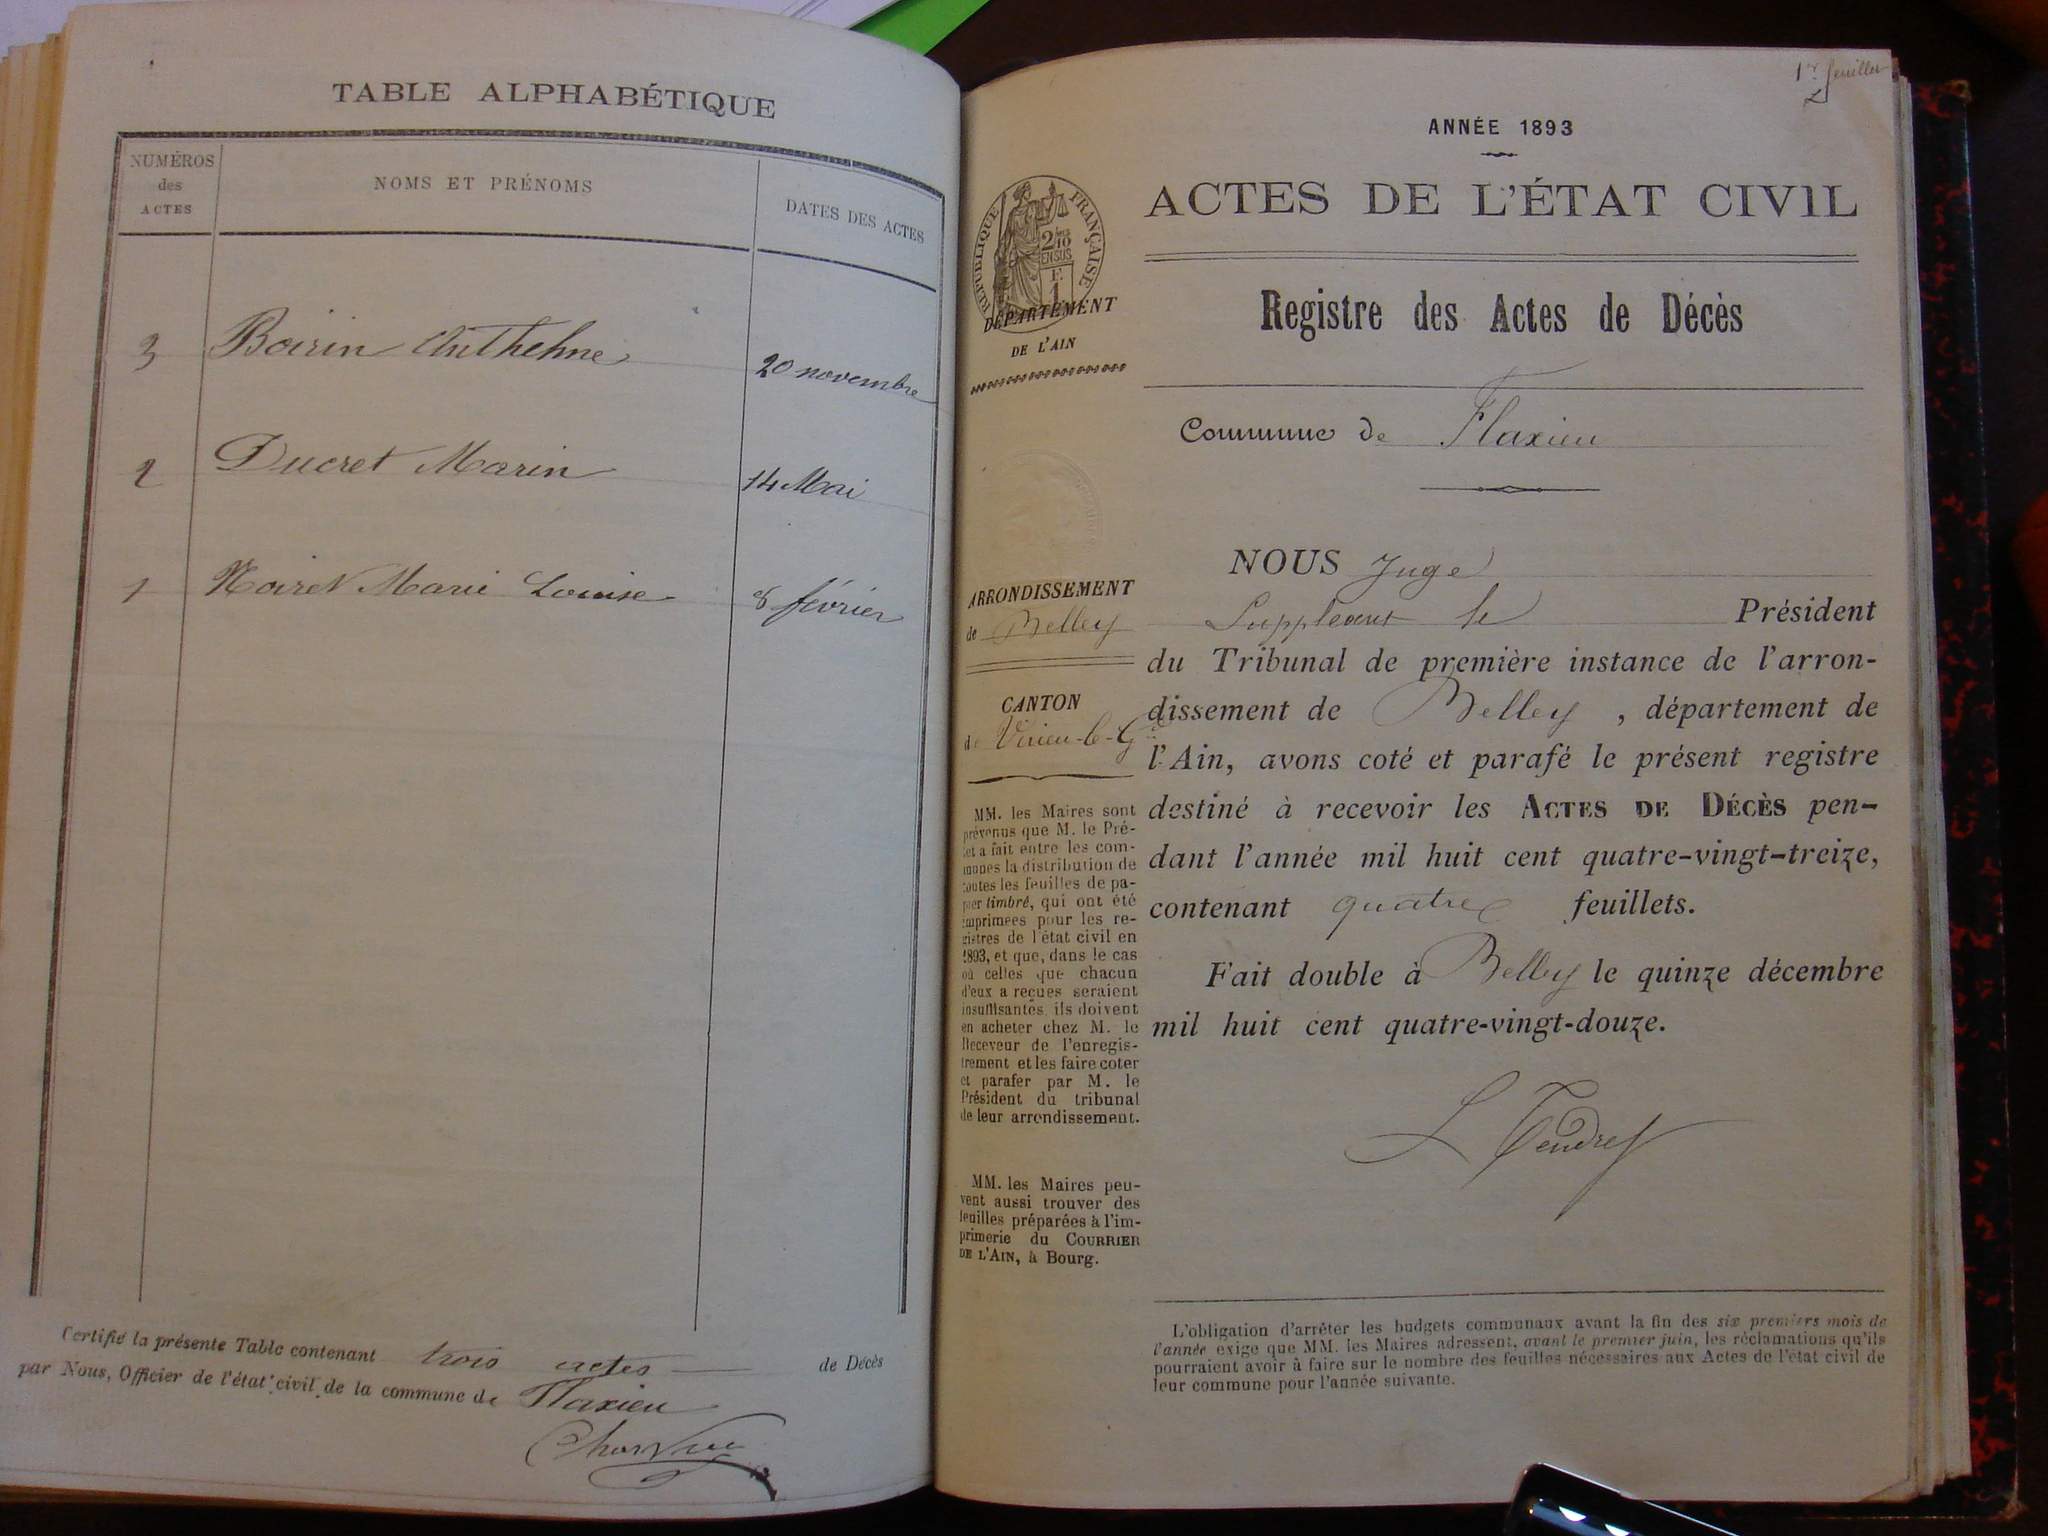 TABLE ALPHABÉTIQUE
NUMÉROS
des
ACTES
NOMS ET PRÉNOMS
DATES DES ACTES
3 Boirin Anthelme 20 novembre
2 Ducret Marin 14 Mai
1 Noiret Marie Louise 8 février
Certifié la présente Table contenant trois actes de Décès
par Nous, Officier de l'état civil de la commune de Flaxieu
1er feuillet
ANNÉE 1893
ACTES DE L'ÉTAT CIVIL
RÉPUBLIQUE FRANÇAISE
2/10
EN SUS
F.
1
DÉPARTEMENT
DE L'AIN
Registre des Actes de Décès
Commune de Flaxieu
ARRONDISSEMENT
de Belley
CANTON
de Virieu-le-Gd
MM. les Maires sont
prévenus que M. le Pré-
fet a fait entre les com-
munes la distribution de
toutes les feuilles de pa-
pier timbré, qui ont été
imprimées pour les re-
gistres de l'état civil en
1893, et que, dans le cas
où celles que chacun
d'eux a reçues seraient
insuffisantes, ils doivent
en acheter chez M. le
Receveur de l'enregis-
trement et les faire coter
et parafer par M. le
Président du tribunal
de leur arrondissement.
MM. les Maires peu-
vent aussi trouver des
feuilles préparées à l'im-
primerie du COURRIER
DE L'AIN, à Bourg.
NOUS Juge
Suppléant le Président
du Tribunal de première instance de l'arron-
dissement de Belley, département de
l'Ain, avons coté et parafé le présent registre
destiné à recevoir les ACTES DE DÉCÈS pen-
dant l'année mil huit cent quatre-vingt-treize,
contenant quatre feuillets.
Fait double à Belley le quinze décembre
mil huit cent quatre-vingt-douze.
L Tendret
L'obligation d'arrêter les budgets communaux avant la fin des six premiers mois de
l'année exige que MM. les Maires adressent, avant le premier juin, les réclamations qu'ils
pourraient avoir à faire sur le nombre des feuilles nécessaires aux Actes de l'état civil de
leur commune pour l'année suivante.